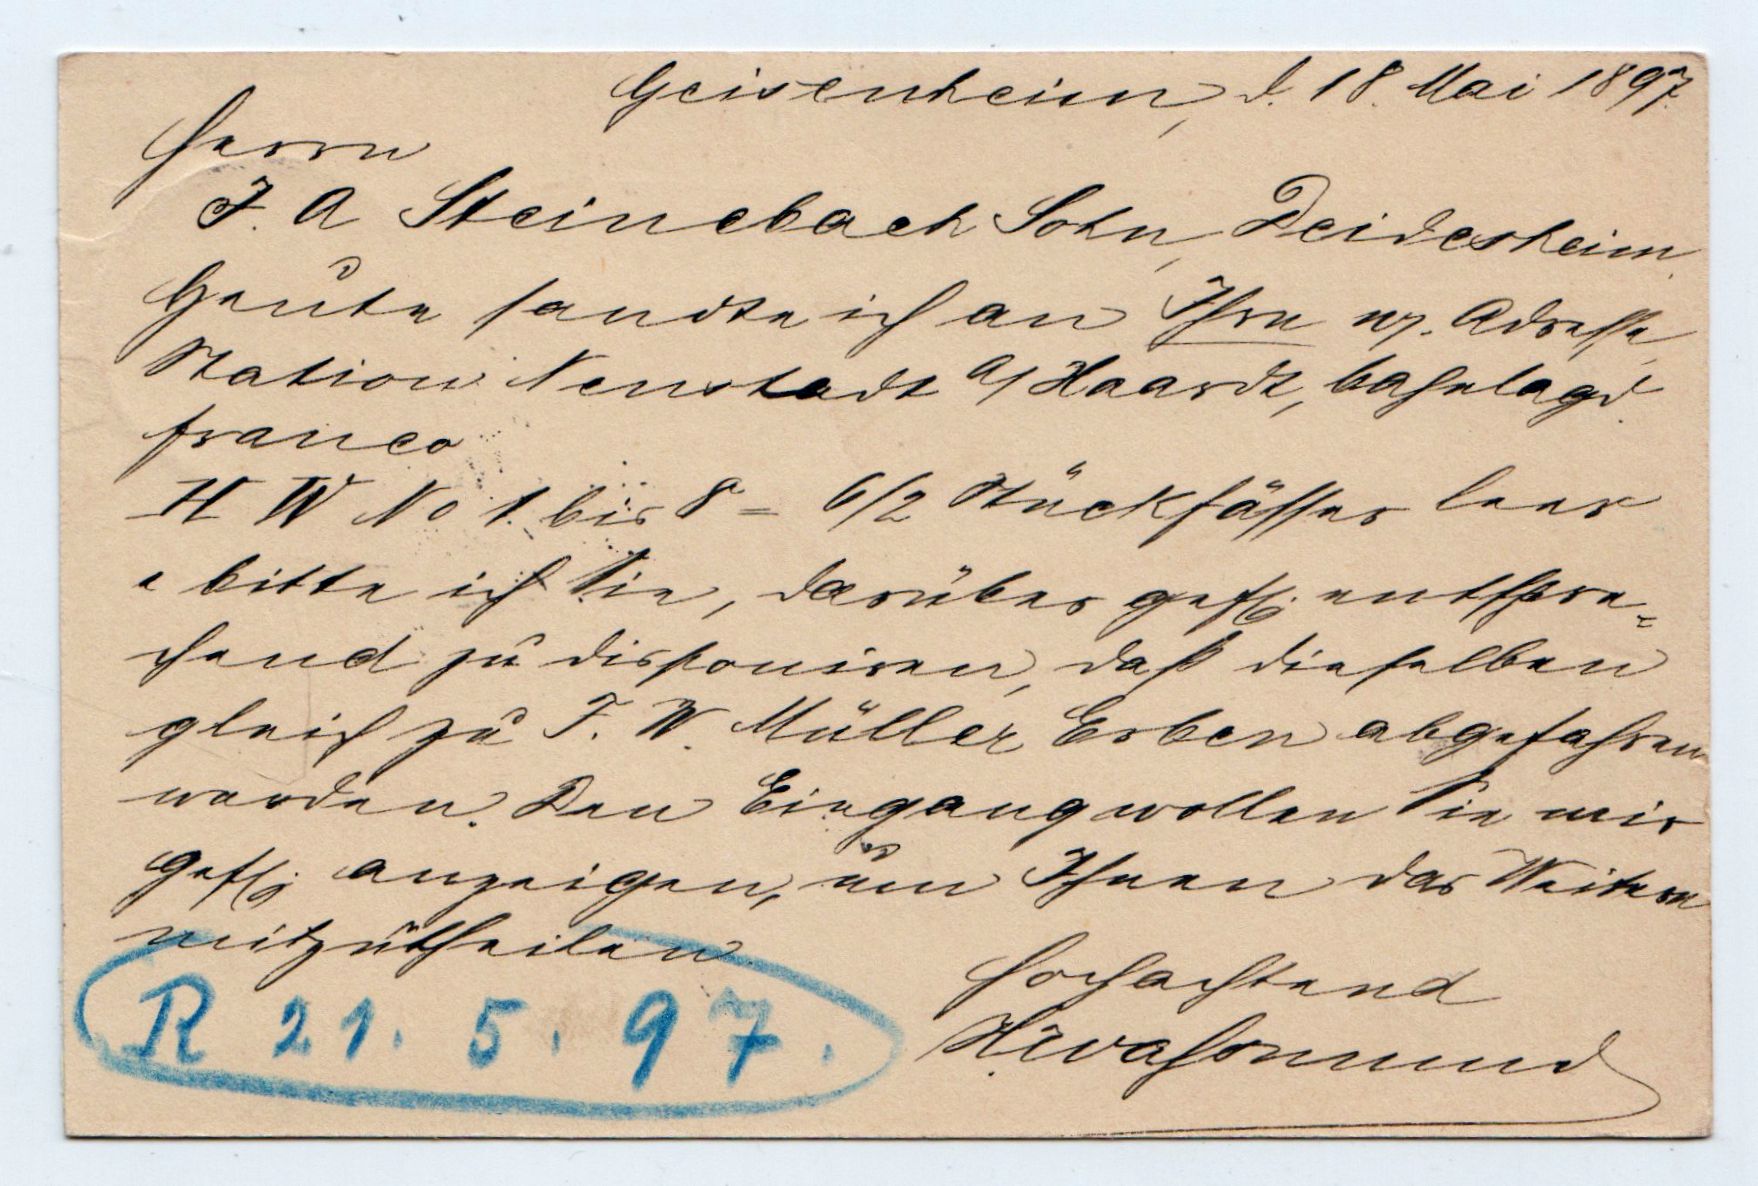 Geisenheim, d. 18. Mai 1897.
Herrn
J. A Steinebach Sohn, Deidesheim.
Heute sandte ich an Ihre w. Adresse,
Station Neustadt a/Haardt, bahnlagd.
franco
H W No 1. bis 8 = 6/2 Stückfässer leer
& bitte ich Sie, darüber gefl. entspre=
chend zu disponiren, daß dieselben
gleich zu F. W. Müller Erben abgefahren
werden. Den Eingang wollen Sie mir
gefl. anzeigen, um Ihnen das Weitere
mitzutheilen.
Hochachtend
R 21. 5. 97.